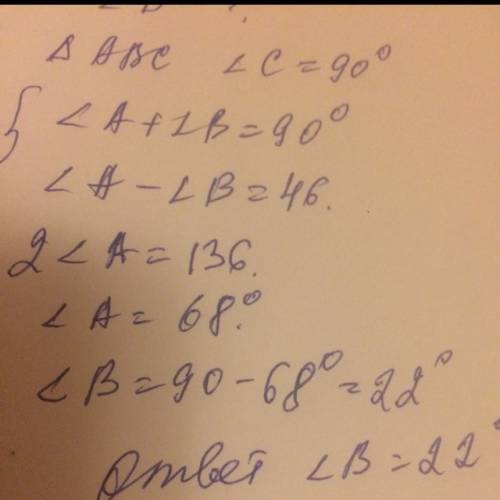 Δ ABC ∠C=90°
{ ∠A+∠B=90°
∠A-∠B=46.
2∠A=136.
∠A=68°.
∠B=90-68°=22°
Ответ ∠B=22°